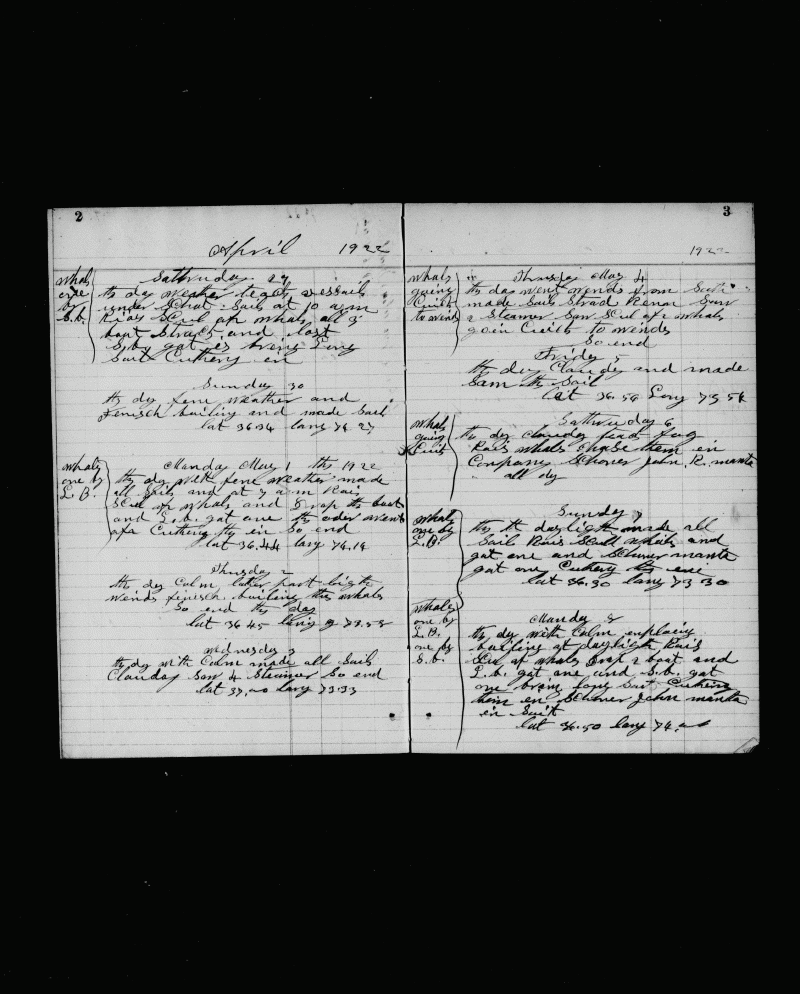 2
April 1922
Sathruday 29
whals
one
by
S.b.
ths day weather
under Sails at 10 a.m
Rias Scul of whals all 3
boat Strach and lost
S.b. gat es bring Long
Sait Cuthery en
Sunday 30
ths day fene weather and
Fenisch builing and made Sail
lat 36.34 lang 74.27
whals
one by
L. B.
Manday May 1 ths 1922
ths day with fene weather made
all Sails and at 7 a m Rais
Scul of whals and Drap the boat
and L.b. gat one ths oder went
afr Cuthing ths en So end
lat 36.44 lang 74.14
Thusday 2
ths day Calm later part light
wends fenisch builing ths whals
So end ths day
lat 36 45 long
wednesday 3
ths day with Calm made all Sails
Clauday Saw 4 Steamer So end
lat 37.00 lang 73.33
3
192
whals
going
Cuick
to wends
Thusday May 4
ths day went wends from
made Sail Sun
2 Steamer Saw Scul of whals
goin Cuick to wends
So end
Friday 5
ths day Clauday and made
Sam ths Sail
lat 36.56 Long 73 54
whals
going
Cuick
Sathruday 6
ths day clauday fog
Rais whals chase them en
Company Schoner John R. manta
all dy
whals
one by
L.B.
Sunday 7
ths day light made all
Sail Rais Scull whals and
gat one and Schoner manta
gat one Cuthery ths en
lat 36.30 lang 73 30
whals
one by
L.B.
one by
S.b.
Manday 8
ths day with Calm
builing at daylight Rais
Scul of whals Drap 2 boat and
L.b. gat one and S.b. gat
one bring long Sait Cutheng
them en Schoner John manta
en Sait
lat 36.50 lang 74.00